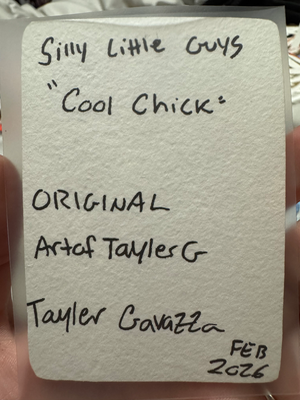 Silly Little Guys
"Cool Chick"
ORIGINAL
Artof TaylerG
Tayler Gavazza
FEB
2026